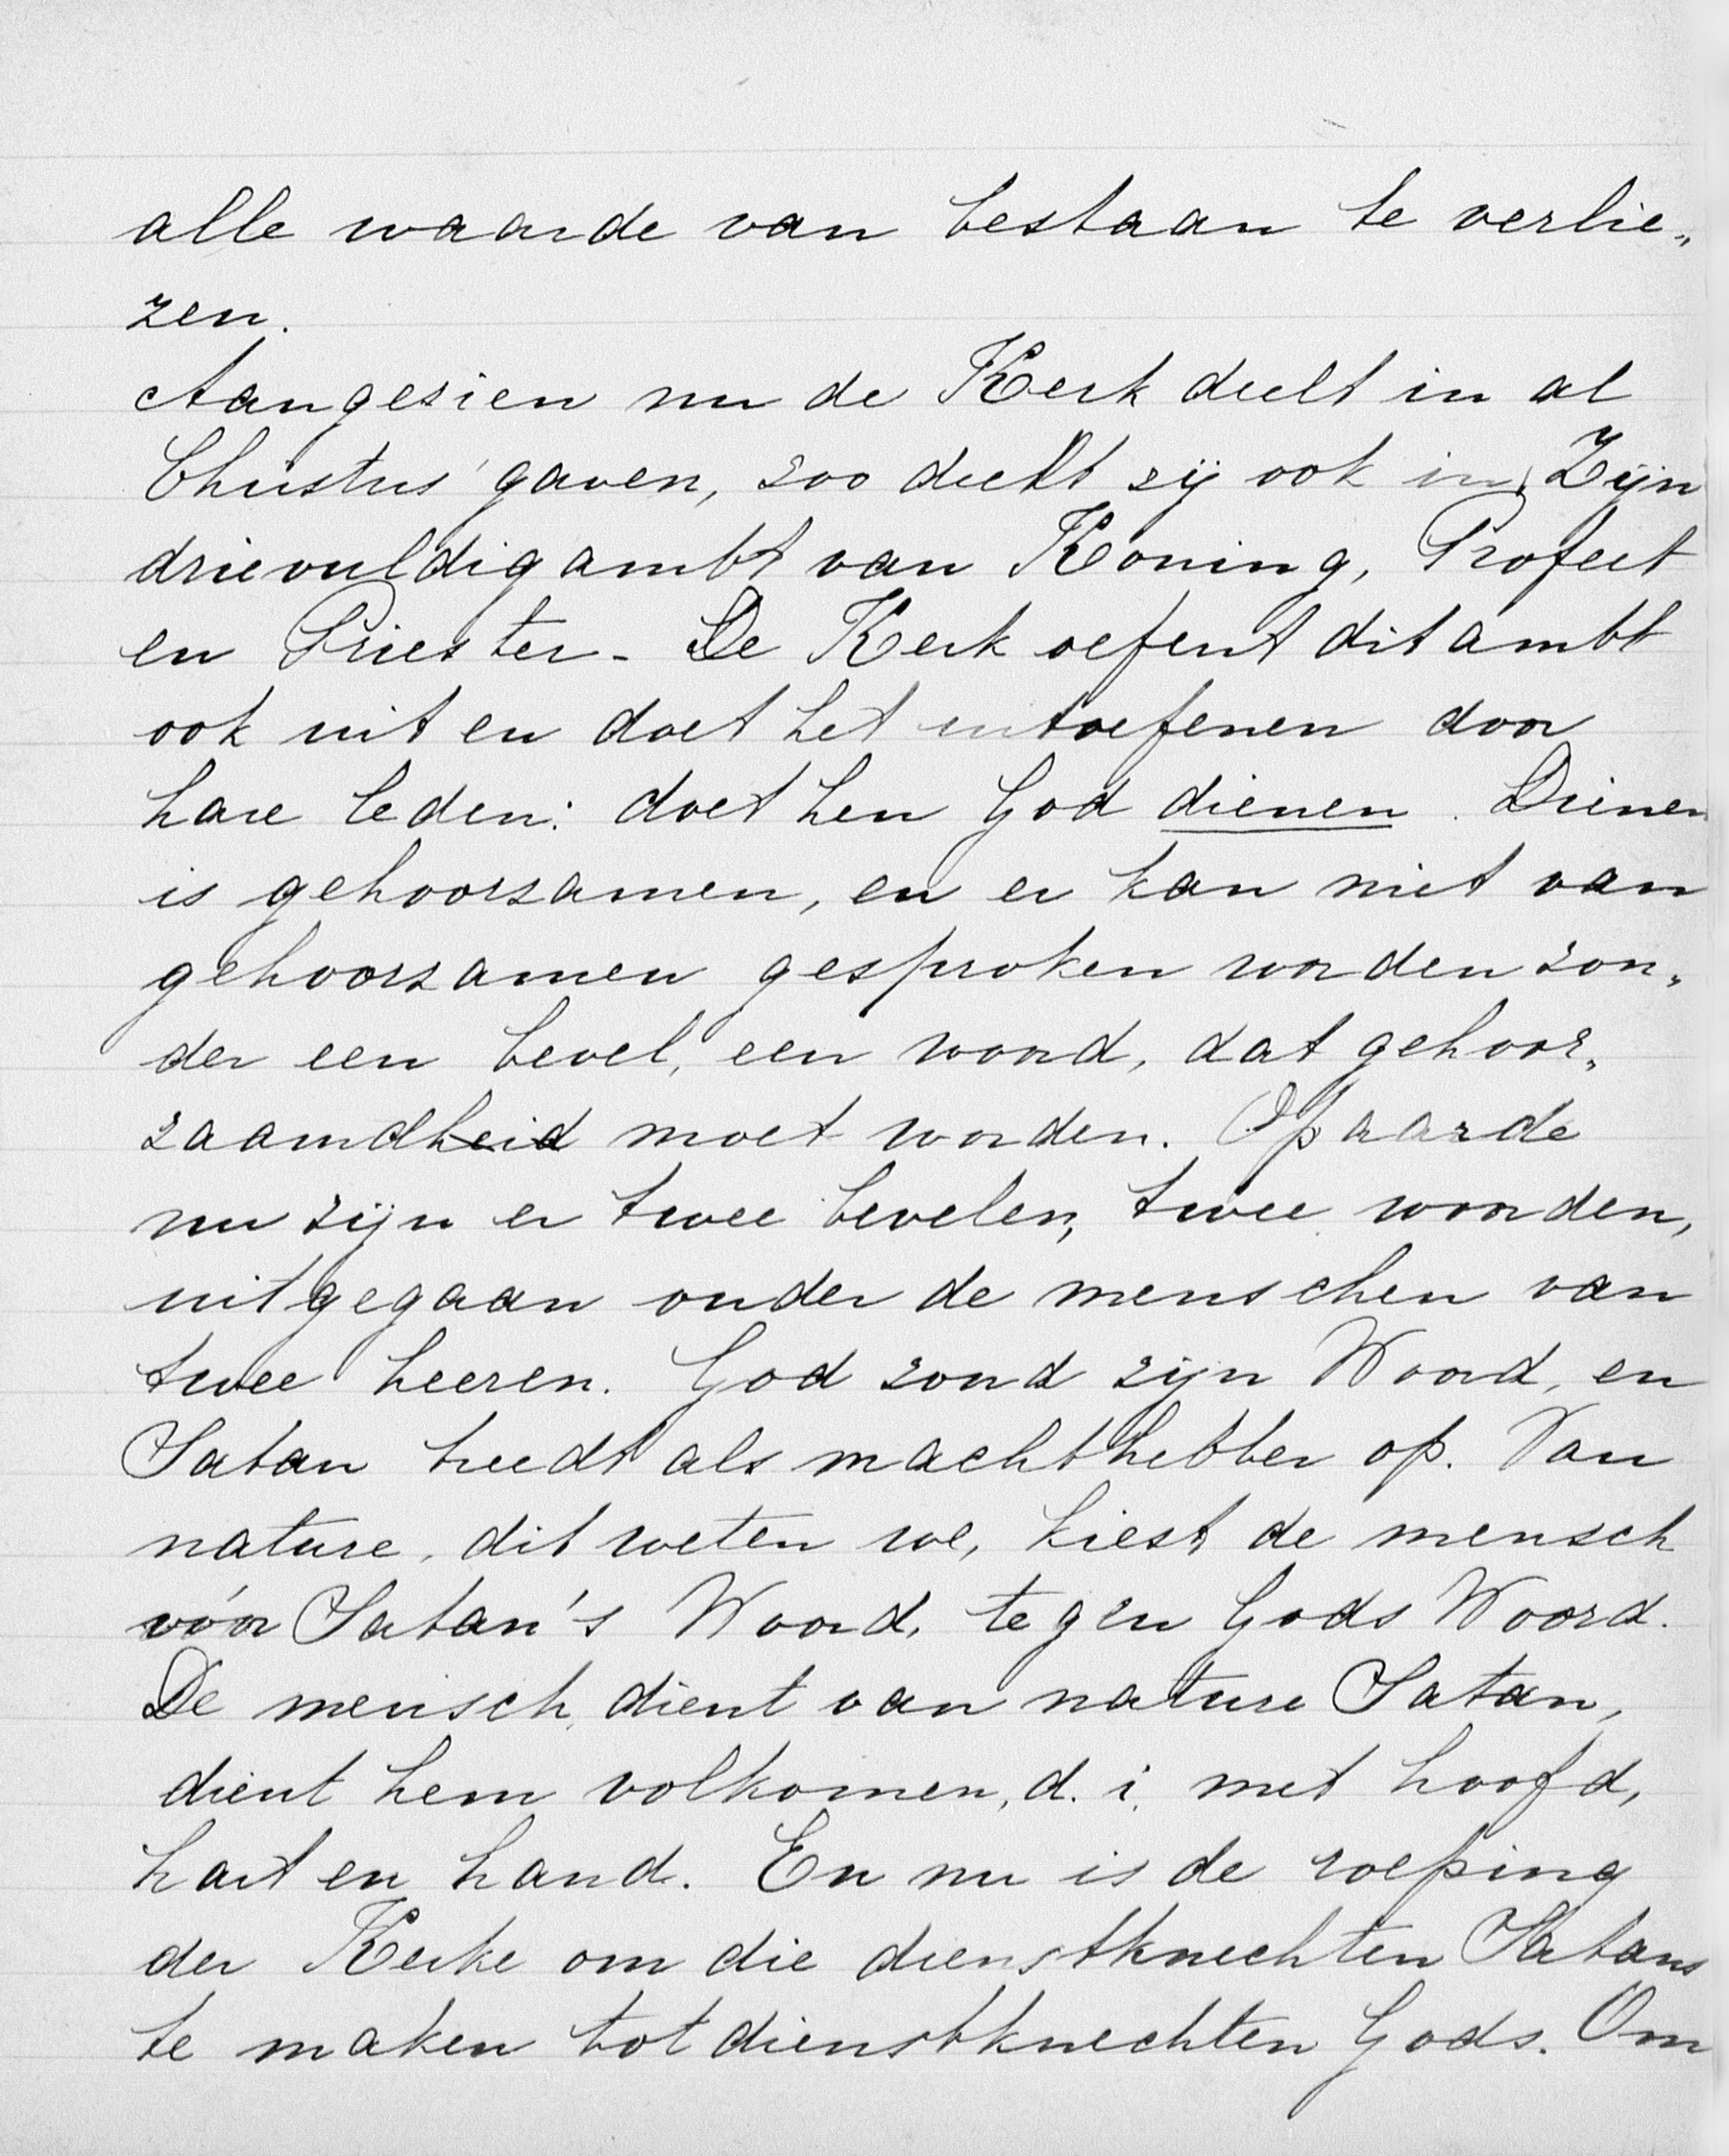 alle waarde van bestaan te verlie„
zen.
Aangezien nu de Kerk deelt in al
Christus' gaven, zoo deelt zij ook in Zijn
drievuldig ambt van Koning, Profeet
en Priester. De Kerk oefent dit ambt
ook uit en doet het uitoefenen door
hare leden: doet hen God dienen. Dienen
is gehoorzamen, en er kan niet van
gehoorzamen gesproken worden zon„
der een bevel, een woord, dat gehoor„
zaamdheid moet worden. Op aarde
nu zijn er twee bevelen, twee woorden,
uitgegaan onder de menschen van
twee heeren. God zond zijn Woord, en
Satan treedt als machthebber op. Van
nature, dit weten we, kiest de mensch
vóór Satan's Woord, tegen Gods Woord.
De mensch dient van nature Satan,
dient hem volkomen, d. i. met hoofd,
hart en hand. En nu is de roeping
der Kerke om die dienstknechten Satans
te maken tot dienstknechten Gods. Om